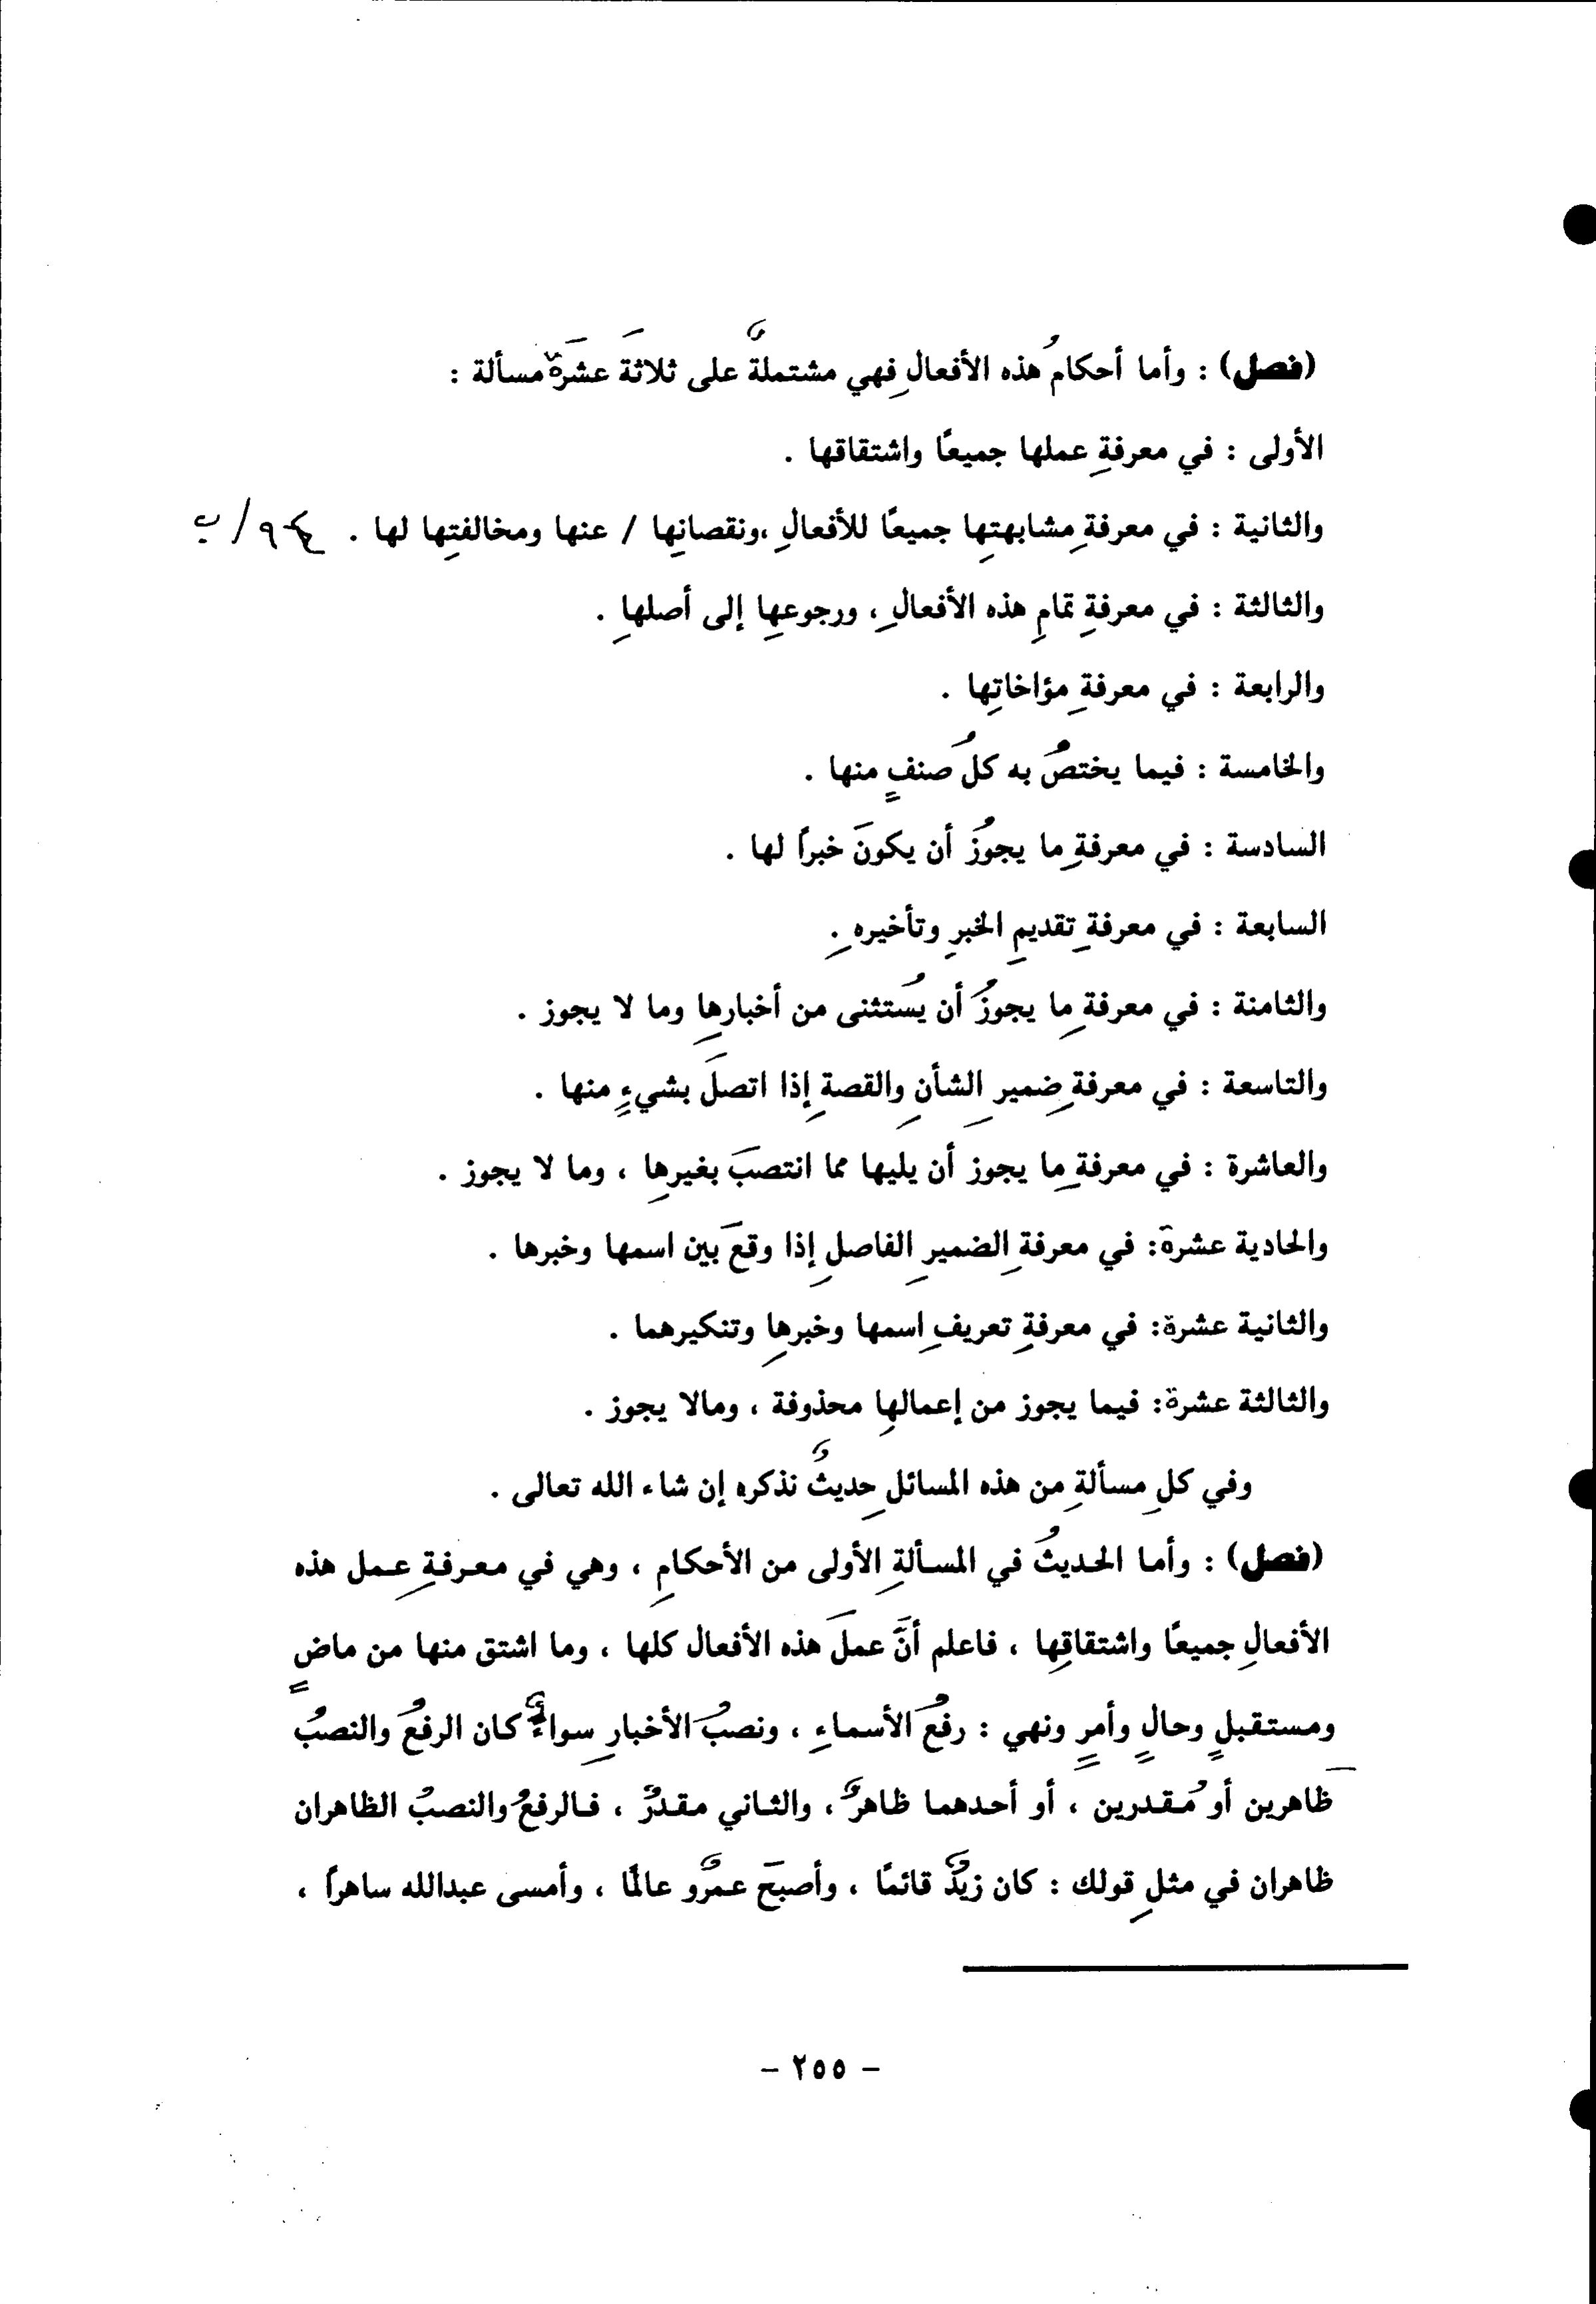 (فصل) : وأما أحكامُ هذه الأفعالِ فهي مشتملةٌ على ثلاثةَ عشرَةَ مسألة :
الأولى : في معرفةِ عملها جميعًا واشتقاقها .
والثانية : في معرفةِ مشابهتِها جميعًا للأفعالِ ،ونقصانِها / عنها ومخالفتِها لها .
والثالثة : في معرفةِ تمامِ هذه الأفعالِ ، ورجوعِها إلى أصلِها .
والرابعة : في معرفةِ مؤاخاتِها .
والخامسة : فيما يختصُ به كلُ صنفٍ منها .
السادسة : في معرفةِ ما يجوزُ أن يكونَ خبراً لها .
السابعة : في معرفةِ تقديمِ الخبرِ وتأخيرهِ .
والثامنة : في معرفةِ ما يجوزُ أن يُستثنى من أخبارِها وما لا يجوز .
والتاسعة : في معرفةِ ضميرِ الشأنِ والقصةِ إذا اتصلَ بشيءٍ منها .
والعاشرة : في معرفةِ ما يجوز أن يليها مما انتصبَ بغيرِها ، وما لا يجوز .
والحادية عشرة: في معرفةِ الضميرِ الفاصلِ إذا وقعَ بين اسمها وخبرها .
والثانية عشرة: في معرفةِ تعريفِ اسمها وخبرِها وتنكيرهما .
والثالثة عشرة: فيما يجوز من إعمالِها محذوفة ، ومالا يجوز .
وفي كلِ مسألةِ من هذه المسائلِ حديثٌ نذكره إن شاء الله تعالى .
(فصل) : وأما الحديثُ في المسألةِ الأولى من الأحكامِ ، وهي في معرفةِ عمل هذه
الأفعالِ جميعًا واشتقاقِها ، فاعلم أنَّ عملَ هذه الأفعال كلها ، وما اشتق منها من ماضٍ
ومستقبلٍ وحالٍ وأمرٍ ونهي : رفعُ الأسماءِ ، ونصبُ الأخبارِ سواءٌ كان الرفعُ والنصبُ
ظاهرين أو مُقدرين ، أو أحدهما ظاهرٌ ، والثاني مقدرٌ ، فالرفعُ والنصبُ الظاهران
ظاهران في مثلِ قولك : كان زيدٌ قائمًا ، وأصبحَ عمرٌو عالمًا ، وأمسى عبدالله ساهراً ،
- ٢٥٥ -